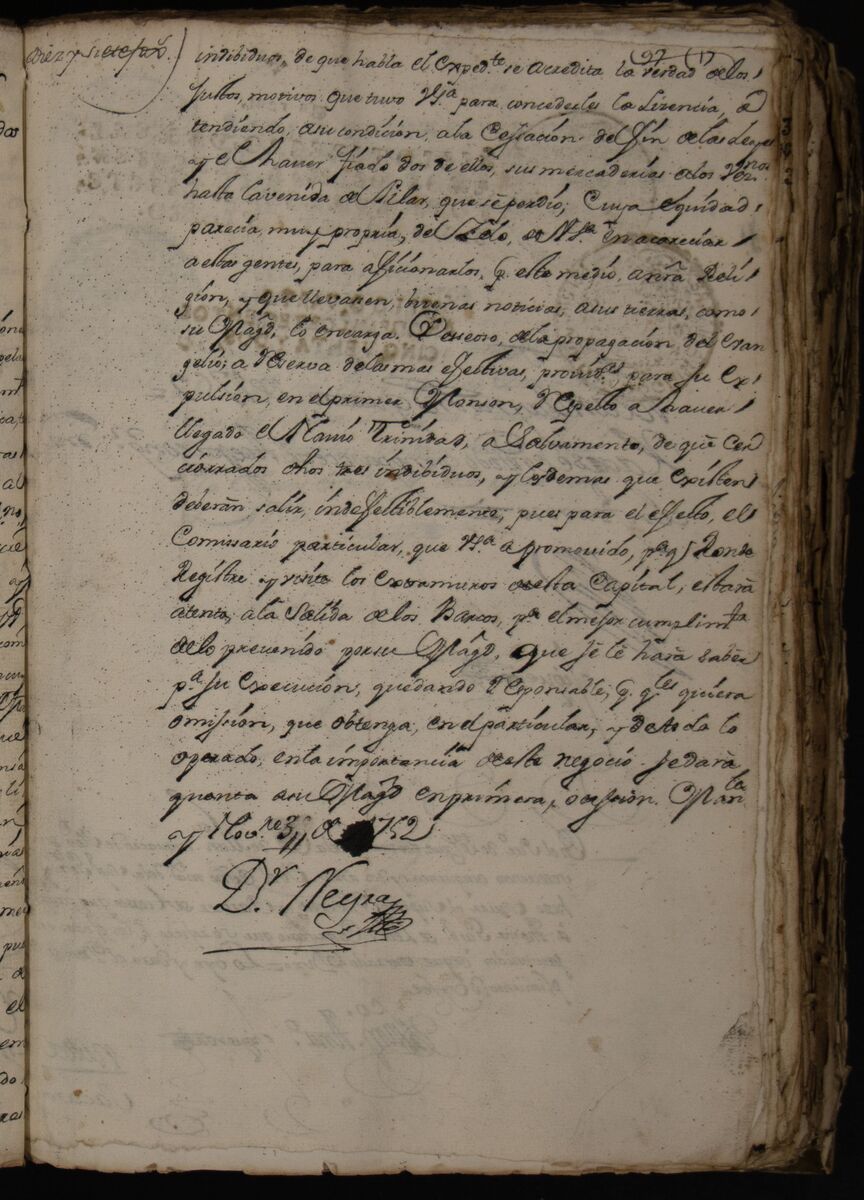 Diez y siete fox.s
97 (17)
indibiduos, de que habla el exped.te se acredita la verdad de los
justos, motivos que tuvo VS.ia para concederles la Lizencia, a
tendiendo, a su condicion, a la Cessacion del fin de las Leyes
y el haver fiado dos de ellos, sus mercaderias a los Vez.nos
hasta la venida del Pilar, que se perdio; Cuya equidad
parecia, muy propria, del Zelo, de VS.ia en acareciar
a estas gentes, para aficionarlos, p. este medio, a nrã Reli
gion, y que llevasen, buenas noticias, a sus tierras, como
su Mag.d lo encarga. Desseoso, de la propagacion del Evan
gelio; a reserva de las mas efectivas, provid.as para su Ex
pulsion, en el primer, Monson, respecto a haver
llegado el Navio Trinidad, a Salvamento, de que cer
ciorrados dhos tres indibiduos, y los demas que existen
deberan salir, indefectiblemente, pues para el efecto, el
Comissario particular, que VS.ia a promovido, p.a q.e Ronde
Registre y visite los extramuros de esta Capital, estarã
atento, a la Salida de los Barcos, p.a el mejor cumplim.to
de lo prevenido por su Mag.d, que se le harã saber
p.a su execucion, quedando responsable, p. q.les quiera
omission, que obtenga, en el particular, y de todo lo
operado, en la importancia de este negocio se darã
quenta a su Mag.d en primera, ocassion. Man.la
y Nov.re 3,, de 1752
D.r Neyra